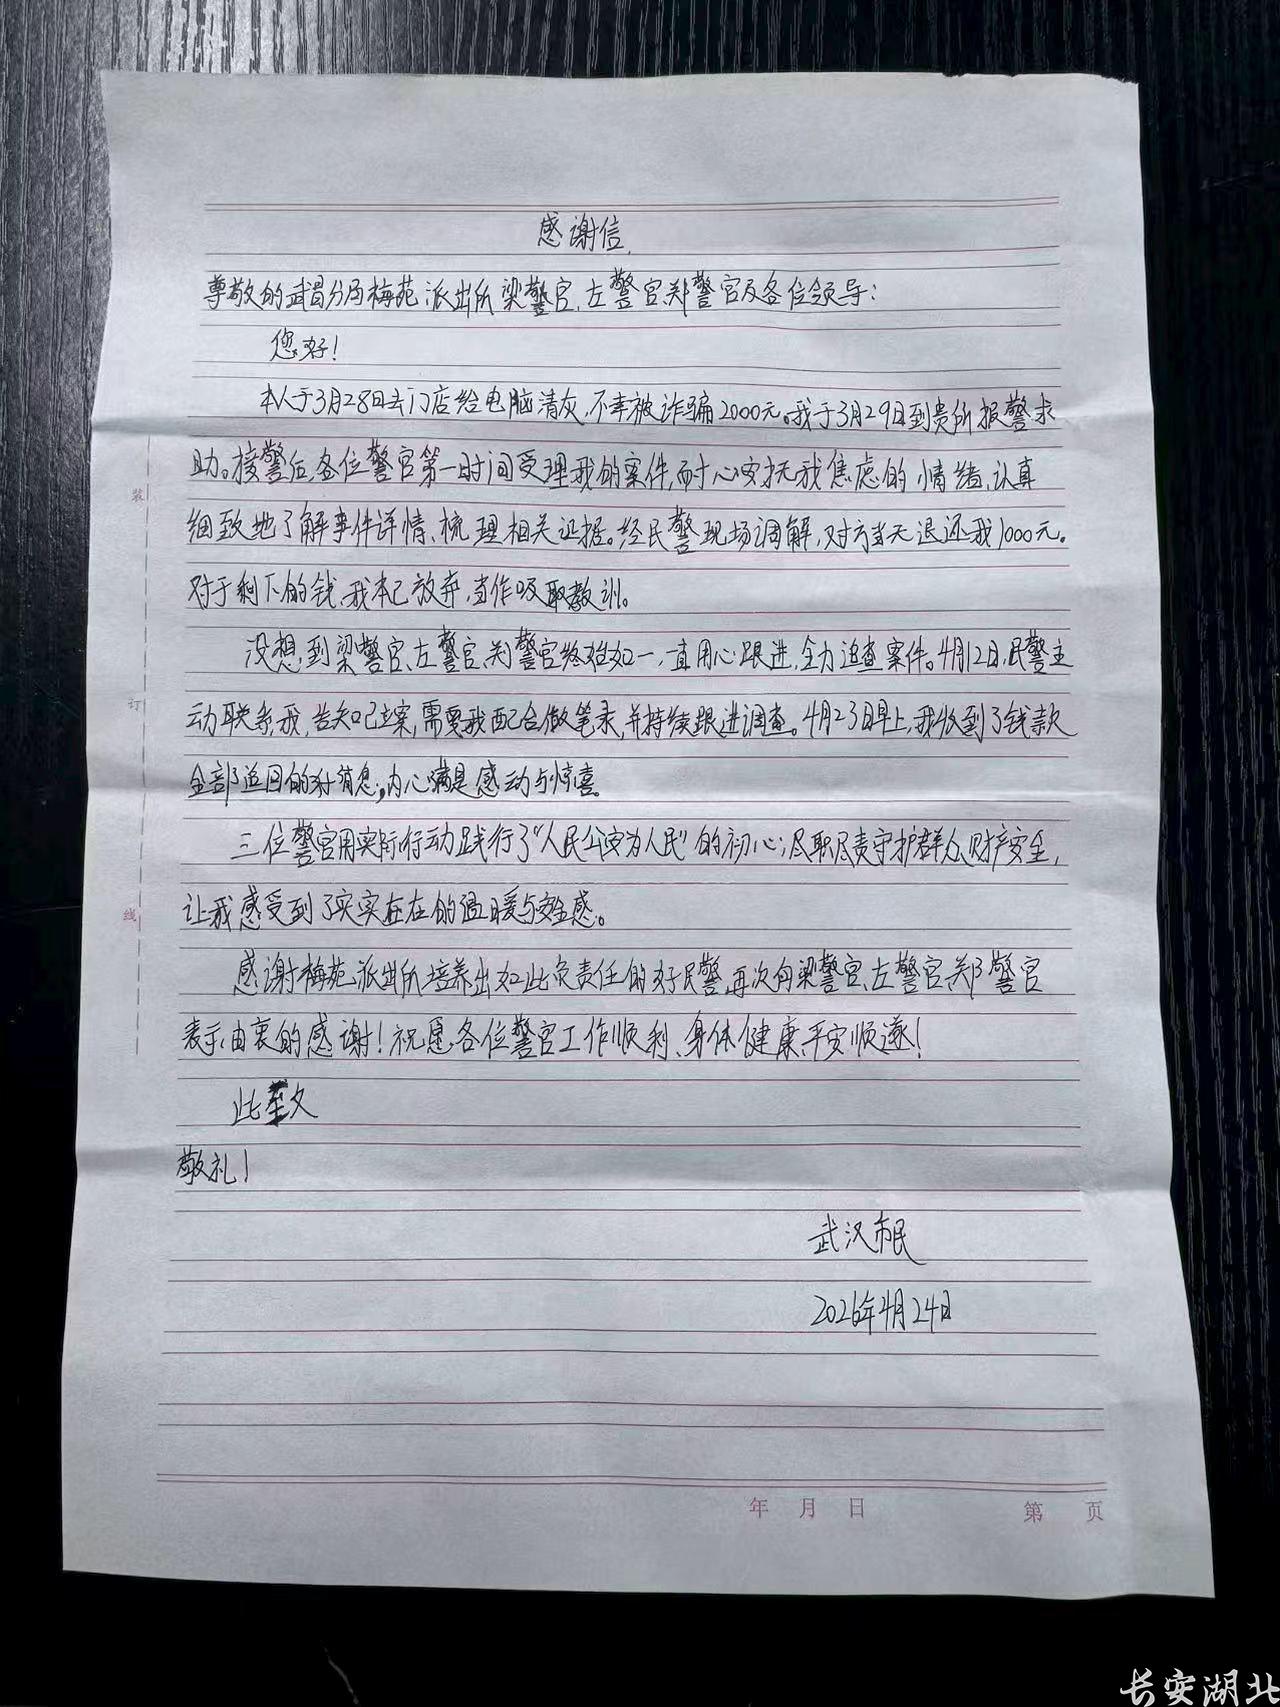 感谢信
尊敬的武昌分局梅苑派出所梁警官、左警官、郑警官及各位领导：
您好！
本人于3月28日去门店给电脑清灰，不幸被诈骗2000元。我于3月29日到贵所报警求
助。接警后，各位警官第一时间受理我的案件，耐心安抚我焦虑的情绪，认真
细致地了解事件详情、梳理相关证据。经民警现场调解，对方当天退还我1000元。
对于剩下的钱，我本已放弃，当作吸取教训。
没想到梁警官、左警官、郑警官终始如一，一直用心跟进，全力追查案件。4月12日，民警主
动联系我，告知已立案，需要我配合做笔录，并持续跟进调查。4月23日早上，我收到了钱款
全部追回的好消息，内心满是感动与惊喜。
三位警官用实际行动践行了“人民公安为人民”的初心，尽职尽责守护群众财产安全，
让我感受到了实实在在的温暖与安全感。
感谢梅苑派出所培养出如此负责任的好民警，再次向梁警官、左警官、郑警官
表示由衷的感谢！祝愿各位警官工作顺利、身体健康、平安顺遂！
此至文
敬礼！
武汉市民
2026年4月24日
装
订
线
年 月 日
第 页
长安湖北